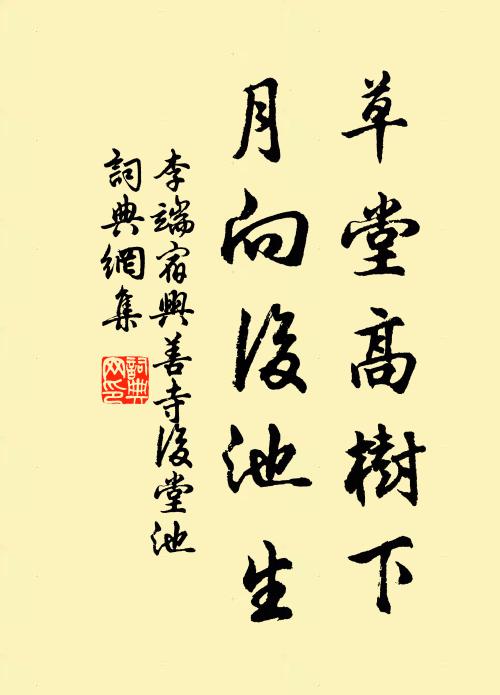 草堂高樹下
月向後池生
李端宿興善寺後堂池
詞典網集
詞典
网印